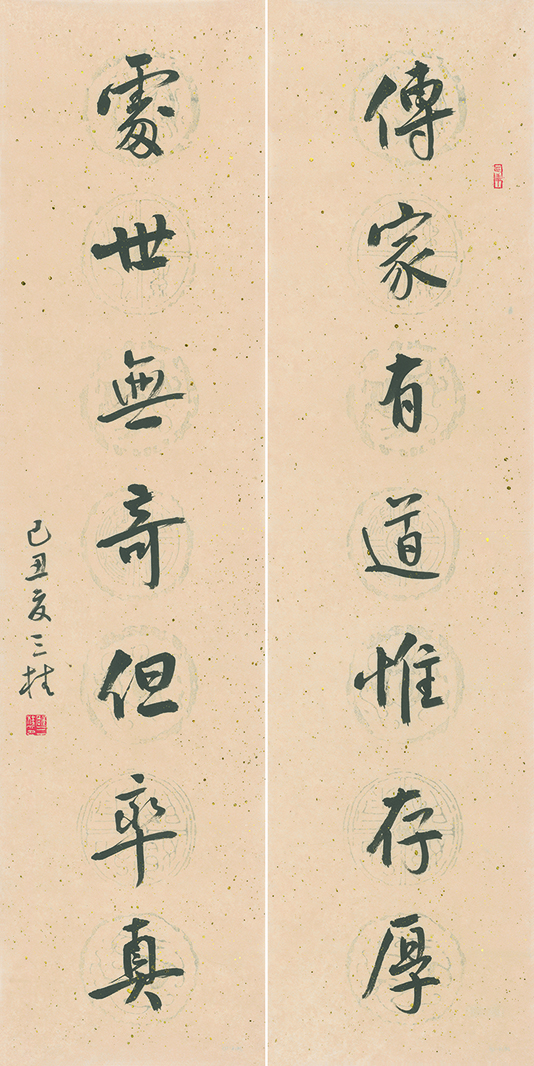 傳家有道惟存厚
處世無奇但率真
己丑夏三桂